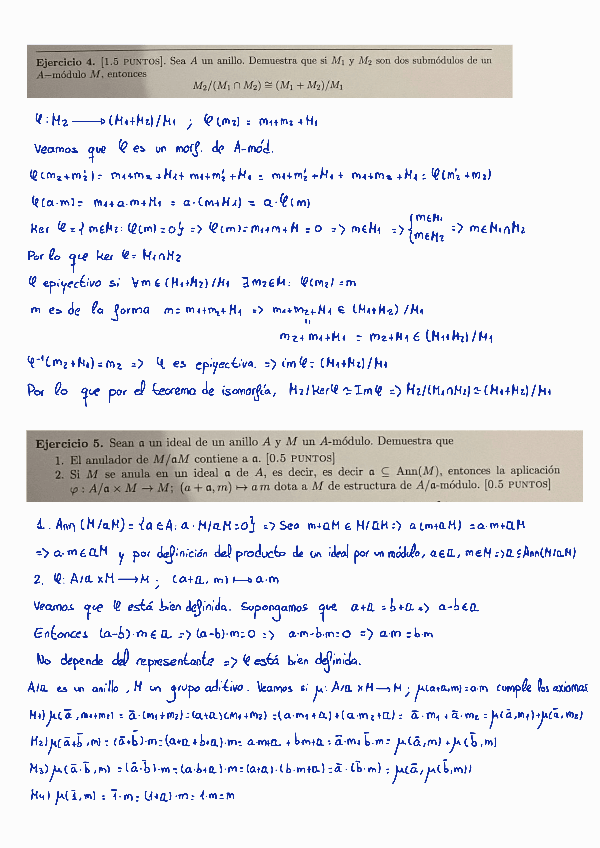 Ejercicio 4. [1.5 PUNTOS]. Sea A un anillo. Demuestra que si M₁ y M₂ son dos submódulos de un
A−módulo M, entonces
M₂/(M₁ ∩ M₂) ≅ (M₁ + M₂)/M₁
φ: M₂ ⟶ (M₁+M₂)/M₁ ; φ(m₂) = m₁+m₂+M₁
Veamos que φ es un morf. de A-mód.
φ(m₂+m₂') = m₁+m₂+M₁+ m₁+m₂'+M₁ = m₁+m₂'+M₁ + m₁+m₂+M₁ = φ(m₂'+m₂)
φ(a·m) = m₁+a·m+M₁ = a·(m+M₁) = a·φ(m)
Ker φ = { m∈M₂: φ(m)=0 } => φ(m)=m₁+m+M = 0 => m∈M₁ => { m∈M₁ m∈M₂ => m∈M₁∩M₂
Por lo que Ker φ = M₁∩M₂
φ epiyectivo si ∀m∈(M₁+M₂)/M₁ ∃m₂∈M: φ(m₂)=m
m es de la forma m=m₁+m₂+M₁ => m₁+m₂+M₁ ∈ (M₁+M₂)/M₁
m₂+m₁+M₁ = m₂+M₁ ∈ (M₁+M₂)/M₁
φ⁻¹(m₂+M₁)=m₂ => φ es epiyectiva. => im φ = (M₁+M₂)/M₁
Por lo que por el teorema de isomorfía, M₂/Ker φ ≃ Im φ => M₂/(M₁∩M₂) ≃ (M₁+M₂)/M₁
Ejercicio 5. Sean 𝔞 un ideal de un anillo A y M un A-módulo. Demuestra que
1. El anulador de M/𝔞M contiene a 𝔞. [0.5 PUNTOS]
2. Si M se anula en un ideal 𝔞 de A, es decir, es decir 𝔞 ⊆ Ann(M), entonces la aplicación
φ : A/𝔞 × M → M; (a + 𝔞, m) ↦ a m dota a M de estructura de A/𝔞-módulo. [0.5 PUNTOS]
1. Ann(M/𝔞M) = {a∈A: a·M/𝔞M=0} => Sea m+𝔞M ∈ M/𝔞M => a(m+𝔞M) = a·m+𝔞M
=> a·m∈𝔞M y por definición del producto de un ideal por un módulo, a∈𝔞, m∈M => 𝔞⊆Ann(M/𝔞M)
2. φ: A/𝔞 × M ⟶ M ; (a+𝔞, m) ⟼ a·m
Veamos que φ está bien definida. Supongamos que a+𝔞 = b+𝔞 => a-b∈𝔞
Entonces (a-b)·m∈𝔞 => (a-b)·m=0 => a·m-b·m=0 => a·m=b·m
No depende del representante => φ está bien definida.
A/𝔞 es un anillo, M un grupo aditivo. Veamos si μ: A/𝔞 × M ⟶ M ; μ(a+𝔞,m)=a·m cumple los axiomas
M₁) μ(ā, m₁+m₂) = ā·(m₁+m₂)=(a+𝔞)(m₁+m₂)=(a·m₁+𝔞)+(a·m₂+𝔞) = ā·m₁+ā·m₂ = μ(ā,m₁)+μ(ā,m₂)
M₂) μ(ā+b̄,m) = (ā+b̄)·m=(a+𝔞+b+𝔞)·m= a·m+𝔞 + b·m+𝔞= ā·m+b̄·m = μ(ā,m)+μ(b̄,m)
M₃) μ(ā·b̄,m) = (ā·b̄)·m=(a·b+𝔞)·m=(a+𝔞)·(b·m+𝔞)=ā·(b̄·m) = μ(ā,μ(b̄,m))
M₄) μ(1̄,m) = 1̄·m = (1+𝔞)·m = 1·m=m